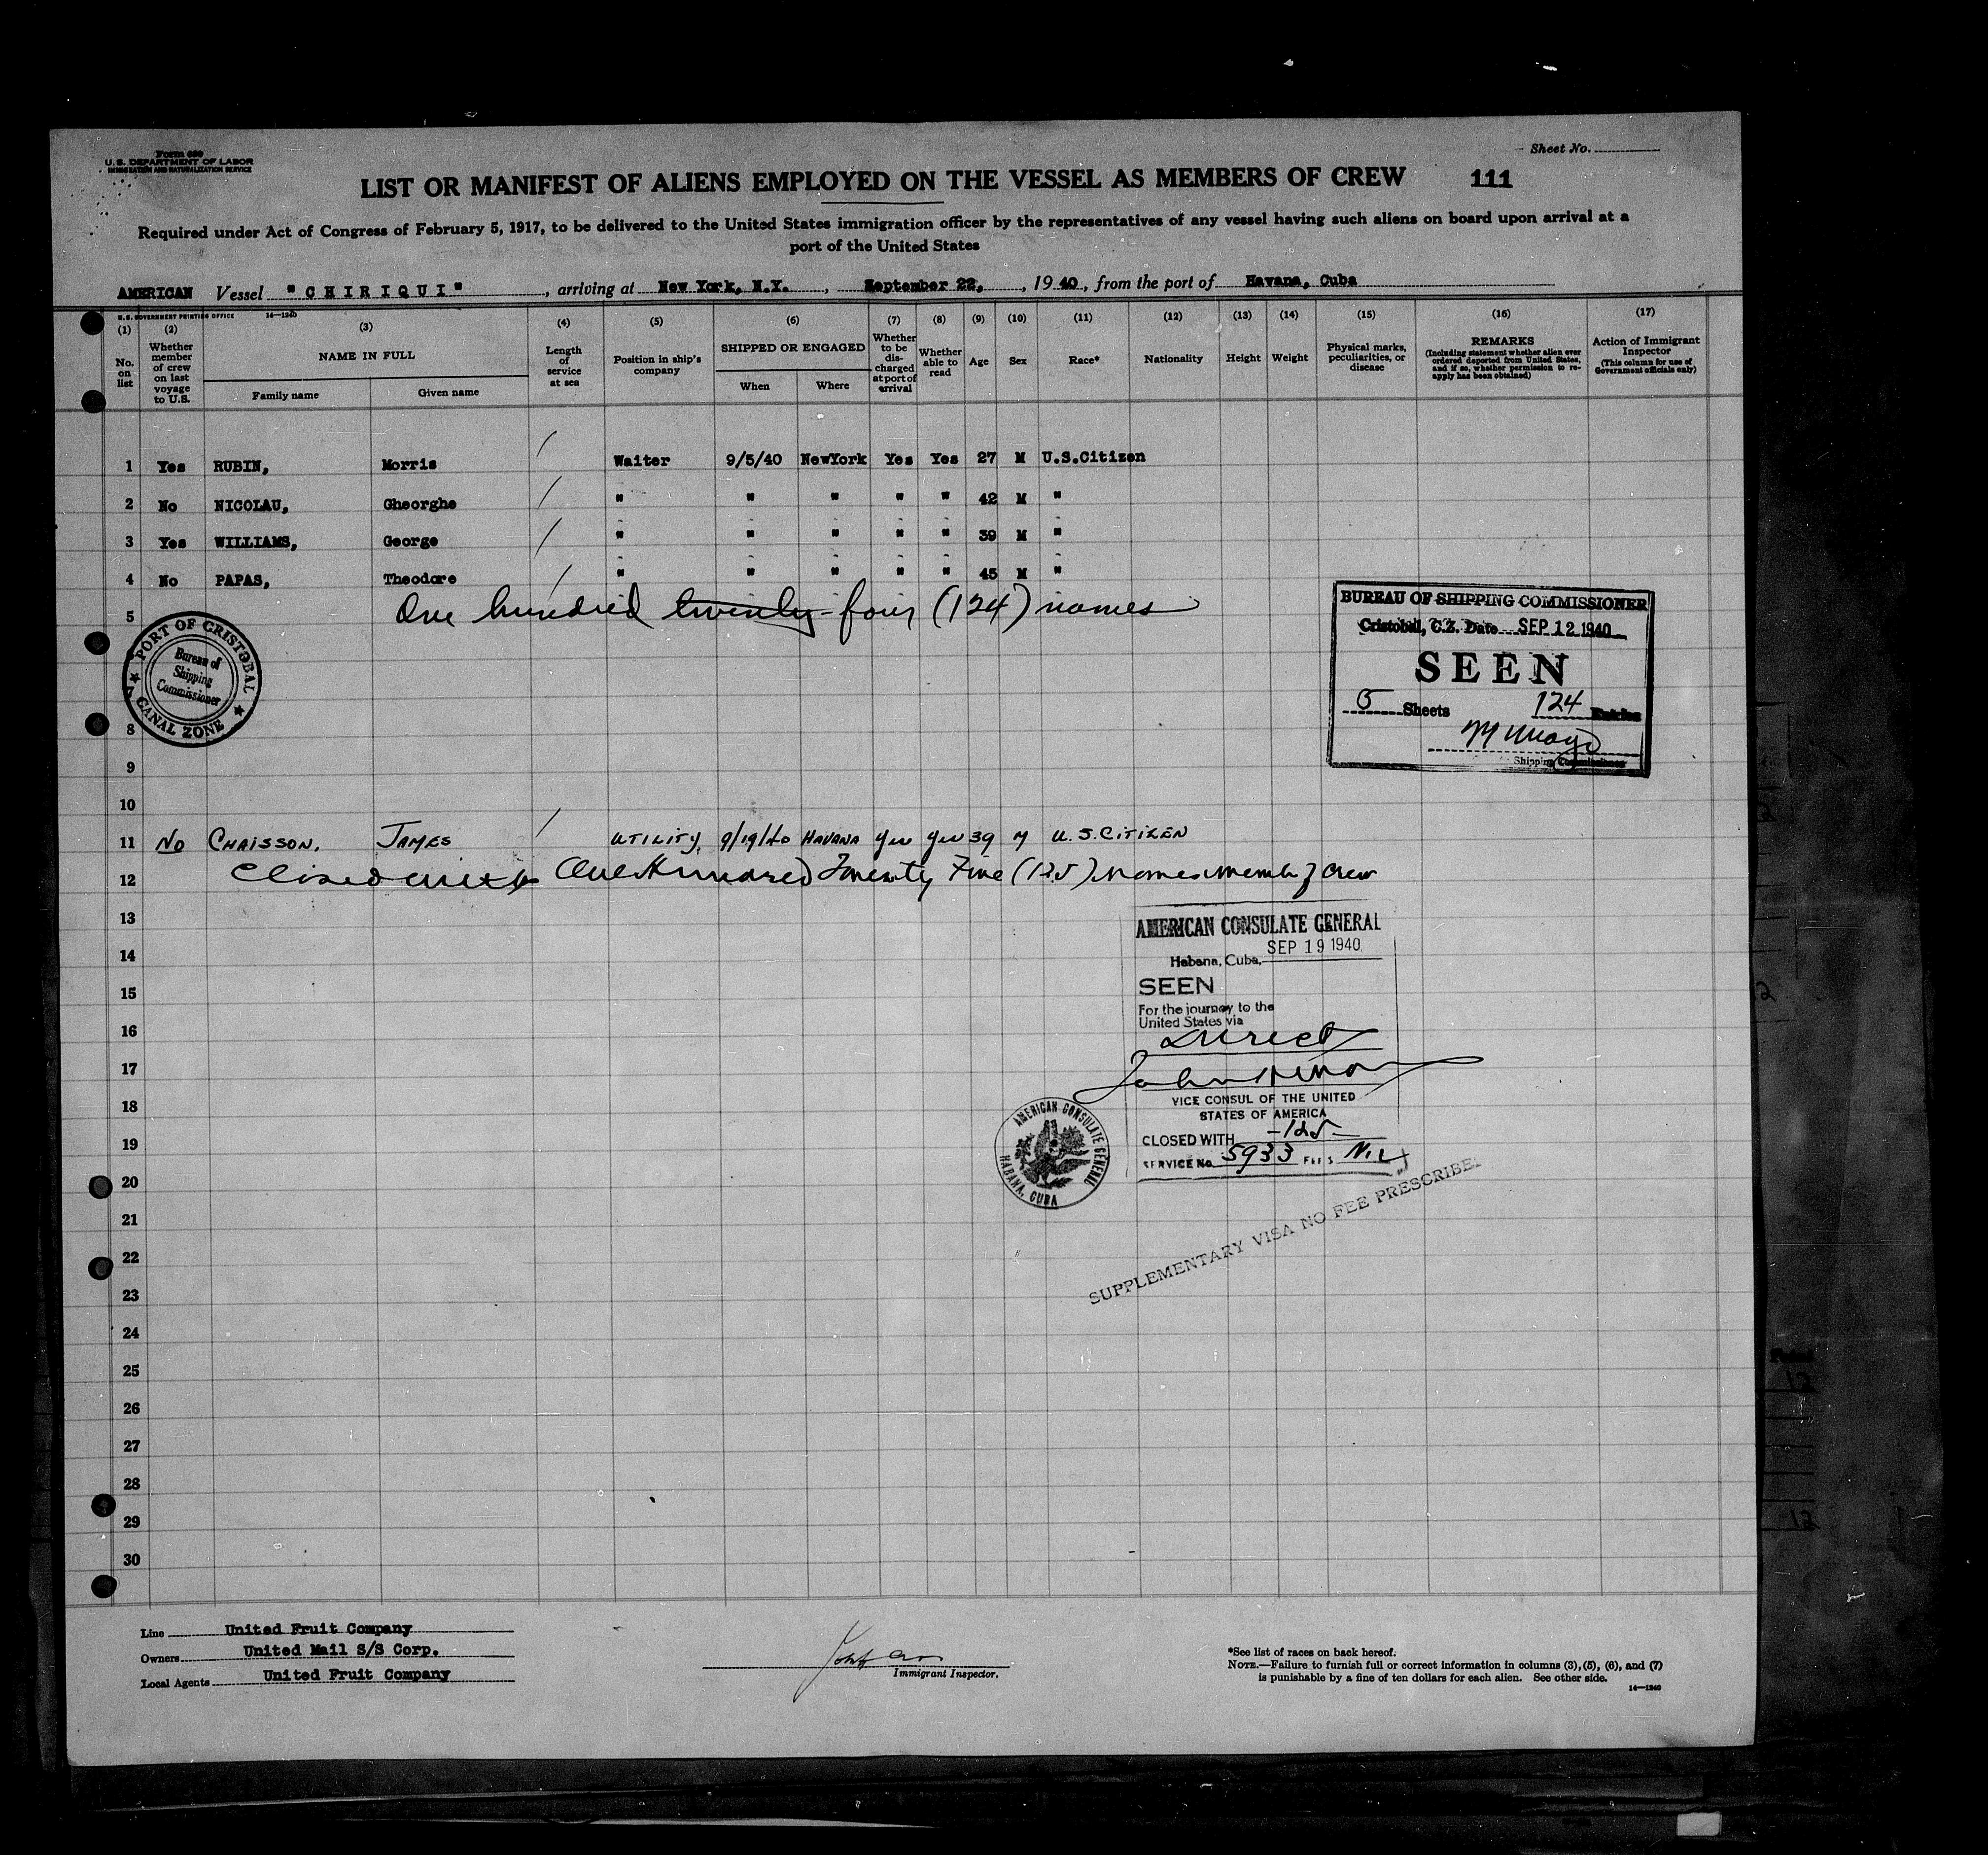 Form 680
U. S. DEPARTMENT OF LABOR
IMMIGRATION AND NATURALIZATION SERVICE
Sheet No.
LIST OR MANIFEST OF ALIENS EMPLOYED ON THE VESSEL AS MEMBERS OF CREW 111
Required under Act of Congress of February 5, 1917, to be delivered to the United States immigration officer by the representatives of any vessel having such aliens on board upon arrival at a
port of the United States
AMERICAN Vessel "CHIRIQUI", arriving at New York, N.Y., September 22, 1940, from the port of Havana, Cuba
U. S. GOVERNMENT PRINTING OFFICE 14—1240
(1) No. on list
(2) Whether member of crew on last voyage to U.S.
(3) NAME IN FULL
Family name
Given name
(4) Length of service at sea
(5) Position in ship's company
(6) SHIPPED OR ENGAGED
When
Where
(7) Whether to be discharged at port of arrival
(8) Whether able to read
(9) Age
(10) Sex
(11) Race*
(12) Nationality
(13) Height
(14) Weight
(15) Physical marks, peculiarities, or disease
(16) REMARKS
(Including statement whether alien ever ordered deported from United States, and if so, whether permission to reapply has been obtained)
(17) Action of Immigrant Inspector
(This column for use of Government officials only)
1 Yes RUBIN, Morris / Waiter 9/5/40 NewYork Yes Yes 27 M U.S.Citizen
2 No NICOLAU, Gheorghe / " " " " " 42 M "
3 Yes WILLIAMS, George / " " " " " 39 M "
4 No PAPAS, Theodore / " " " " " 45 M "
5 One hundred twenty-four (124) names
PORT OF CRISTOBAL
Bureau of
Shipping
Commissioner
CANAL ZONE
7
8
BUREAU OF SHIPPING COMMISSIONER
Cristobal, C.Z. Date SEP 12 1940
SEEN
5 Sheets 124 Entries
Shipping Commissioner
9
10
11 No CHAISSON, JAMES / UTILITY, 9/19/40 HAVANA Yes Yes 39 M U.S. CITIZEN
12 Closed with One Hundred Twenty Five (125) names memb of crew
13
14
15
16
17
18
19
20
21
22
23
24
25
26
27
28
29
30
AMERICAN CONSULATE GENERAL
SEP 19 1940
Habana, Cuba,
SEEN
For the journey to the
United States via
Direct
VICE CONSUL OF THE UNITED
STATES OF AMERICA
CLOSED WITH -125-
SERVICE No. 5933 FEES NIL
AMERICAN CONSULATE GENERAL
HABANA, CUBA
SUPPLEMENTARY VISA NO FEE PRESCRIBED
Line United Fruit Company
Owners United Mail S/S Corp.
Local Agents United Fruit Company
Immigrant Inspector.
*See list of races on back hereof.
NOTE.—Failure to furnish full or correct information in columns (3), (5), (6), and (7)
is punishable by a fine of ten dollars for each alien. See other side.
14—1240